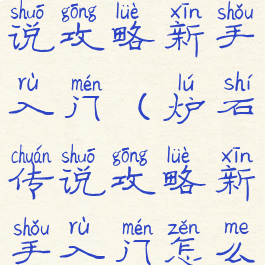 shuō gōng lüè xīn shǒu
说攻略新手
rù mén lú shí
入门（炉石
chuán shuō gōng lüè xīn
传说攻略新
shǒu rù mén zěn me
手入门怎么